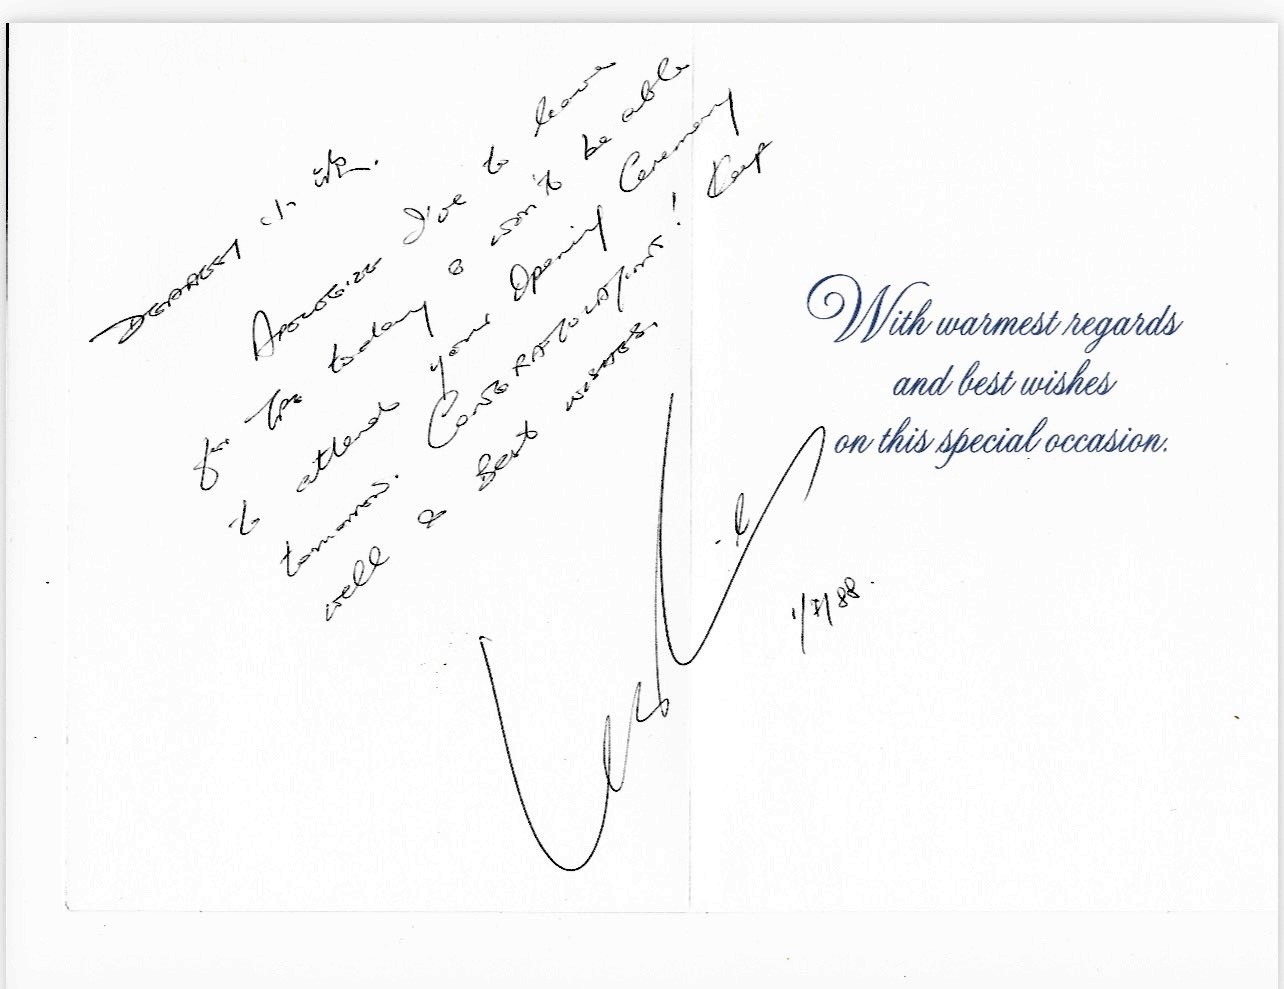 Dearest
Apologize I've to leave
for today & won't be able
to attend your Opening Ceremony
tomorrow. Congratulations! Keep
well & Best wishes.
With warmest regards
and best wishes
on this special occasion.